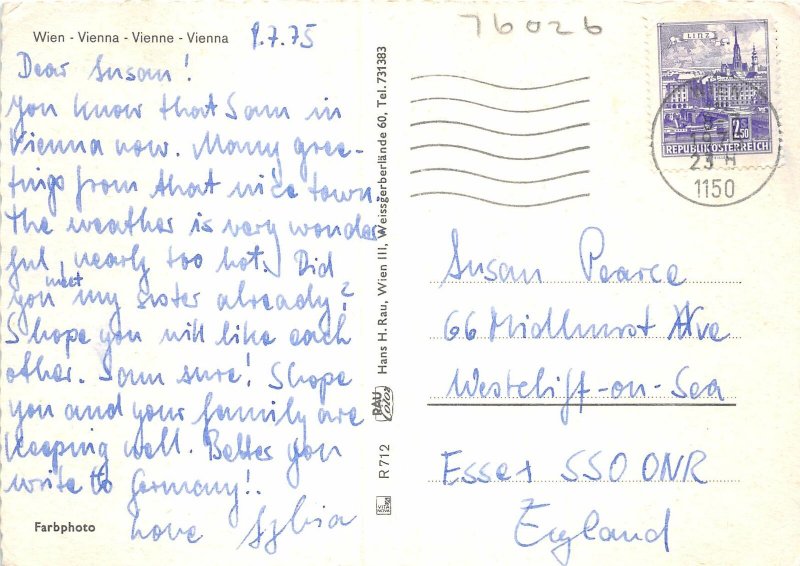 Wien - Vienna - Vienne - Vienna
1.7.75
Dear Susan!
you know that I am in
Vienna now. Many gree-
tings from that nice town.
The weather is very wonder
ful, nearly too hot. Did
you meet my sister already?
I hope you will like each
other. I am sure! I hope
you and your family are
keeping well. Better you
write to Germany!
love Sylvia
Farbphoto
Hans H. Rau, Wien III, Weissgerberlände 60, Tel. 731383
RAU
Color
R 712
VITA
NOVA
76026
LINZ
2.50
REPUBLIK ÖSTERREICH
23 H
1150
Susan Pearce
66 Midlhurst Ave
Westcliff-on-Sea
Essex SSO ONR
England